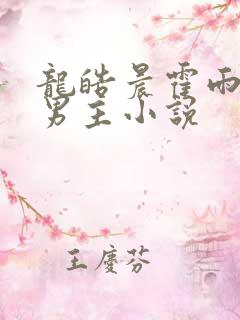 龍皓晨霍雨
男主小說
王慶芬